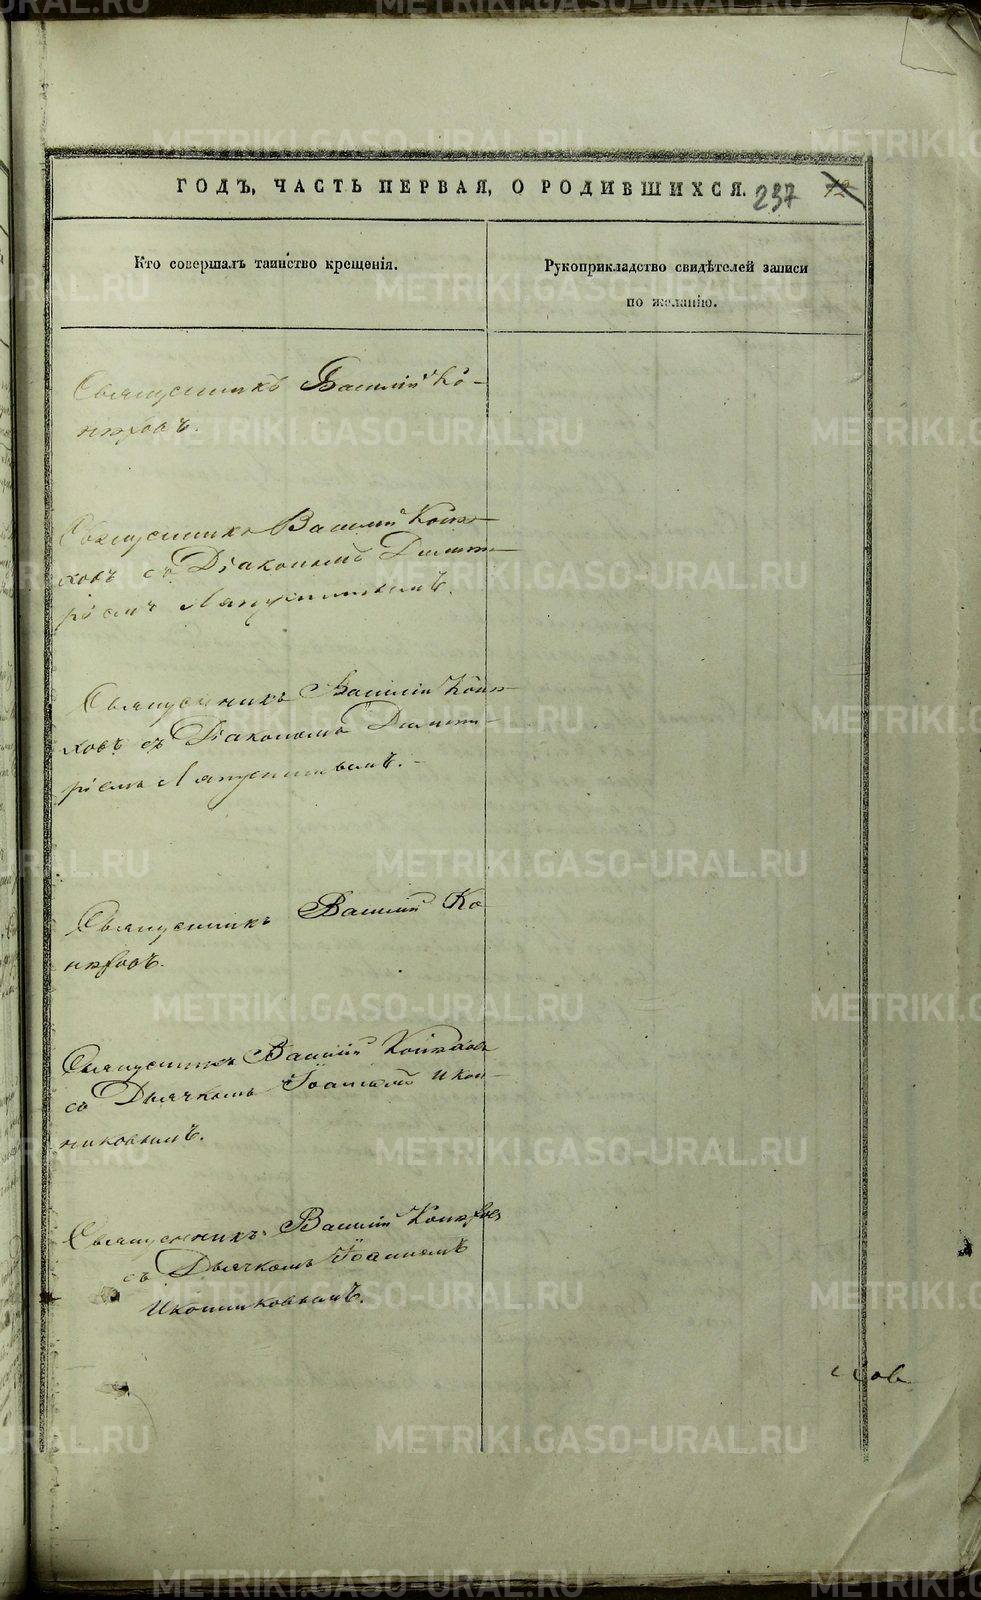 ГОДЪ, ЧАСТЬ ПЕРВАЯ, О РОДИВШИХСЯ.
237
Кто совершалъ таинство крещенія.
Рукоприкладство свидѣтелей записи
по желанію.
Священникъ Василій
Священникъ Василій
съ Діакономъ Димит-
ріемъ
Священникъ Василій
съ Діакономъ Димит-
ріемъ
Священникъ Василій
Священникъ Василій
съ Дьячкомъ Іоанномъ Икон-
никовымъ.
Священникъ Василій
съ Дьячкомъ Іоанномъ
Иконниковымъ.
METRIKI.GASO-URAL.RU